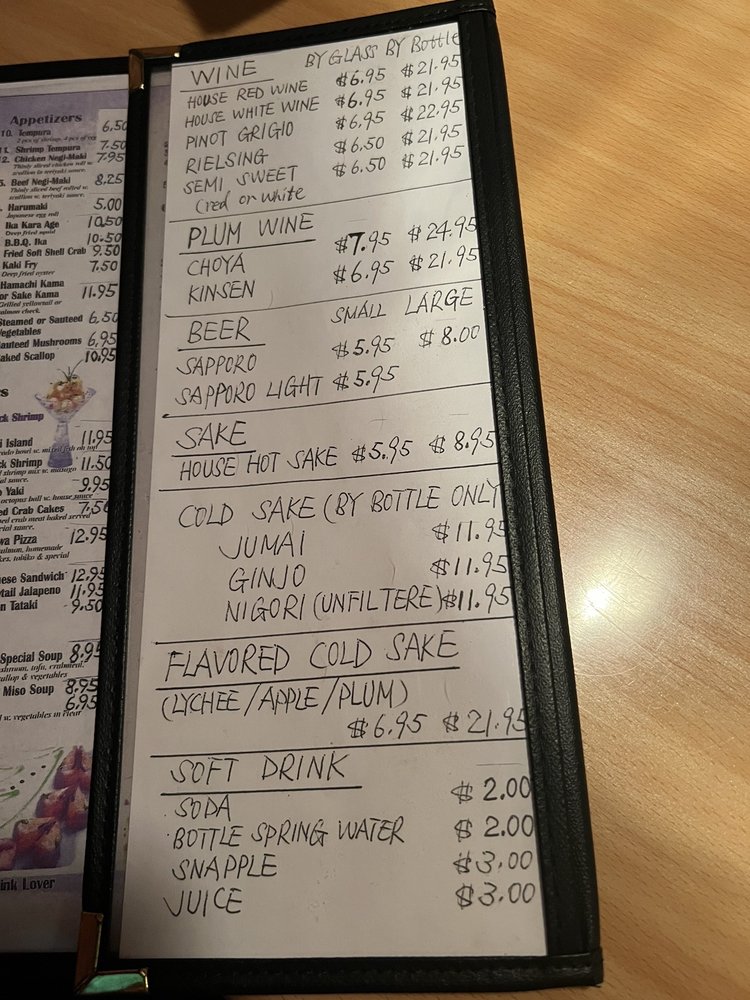 Appetizers
10. Tempura 6.50
2 pcs of shrimp, 4 pcs of veg
11. Shrimp Tempura 7.50
12. Chicken Negi-Maki 7.95
Thinly sliced chicken roll w.
scallion in teriyaki sauce.
Beef Negi-Maki 8.25
Thinly sliced beef rolled w.
scallion w. teriyaki sauce.
Harumaki 5.00
Japanese egg roll
Ika Kara Age 10.50
Deep fried squid
B.B.Q. Ika 10.50
Fried Soft Shell Crab 9.50
Kaki Fry 7.50
Deep fried oyster
Hamachi Kama
or Sake Kama 11.95
Grilled yellowtail or
salmon cheek.
Steamed or Sauteed 6.50
Vegetables
auteed Mushrooms 6.95
aked Scallop 10.95
rs
ck Shrimp
i Island 11.95
ck Shrimp 11.50
Yaki 9.95
octopus ball w. house sauce
ed Crab Cakes 7.50
wa Pizza 12.95
almon, homemade
kes, tobiko & special
ese Sandwich 12.95
tail Jalapeno 11.95
n Tataki 9.50
Special Soup 8.95
allop & vegetables
Miso Soup 8.95
6.95
w. vegetables in clear
ink Lover
WINE BY GLASS BY Bottle
HOUSE RED WINE $6.95 $21.95
HOUSE WHITE WINE $6.95 $21.95
PINOT GRIGIO $6.95 $22.95
RIELSING $6.50 $21.95
SEMI SWEET $6.50 $21.95
(red or white
PLUM WINE
CHOYA $7.95 $24.95
KINSEN $6.95 $21.95
BEER SMALL LARGE
SAPPORO $5.95 $8.00
SAPPORO LIGHT $5.95
SAKE
HOUSE HOT SAKE $5.95 $8.95
COLD SAKE (BY BOTTLE ONLY
JUMAI $11.95
GINJO $11.95
NIGORI (UNFILTERE) $11.95
FLAVORED COLD SAKE
(LYCHEE/APPLE/PLUM)
$6.95 $21.95
SOFT DRINK
SODA $2.00
BOTTLE SPRING WATER $2.00
SNAPPLE $3.00
JUICE $3.00